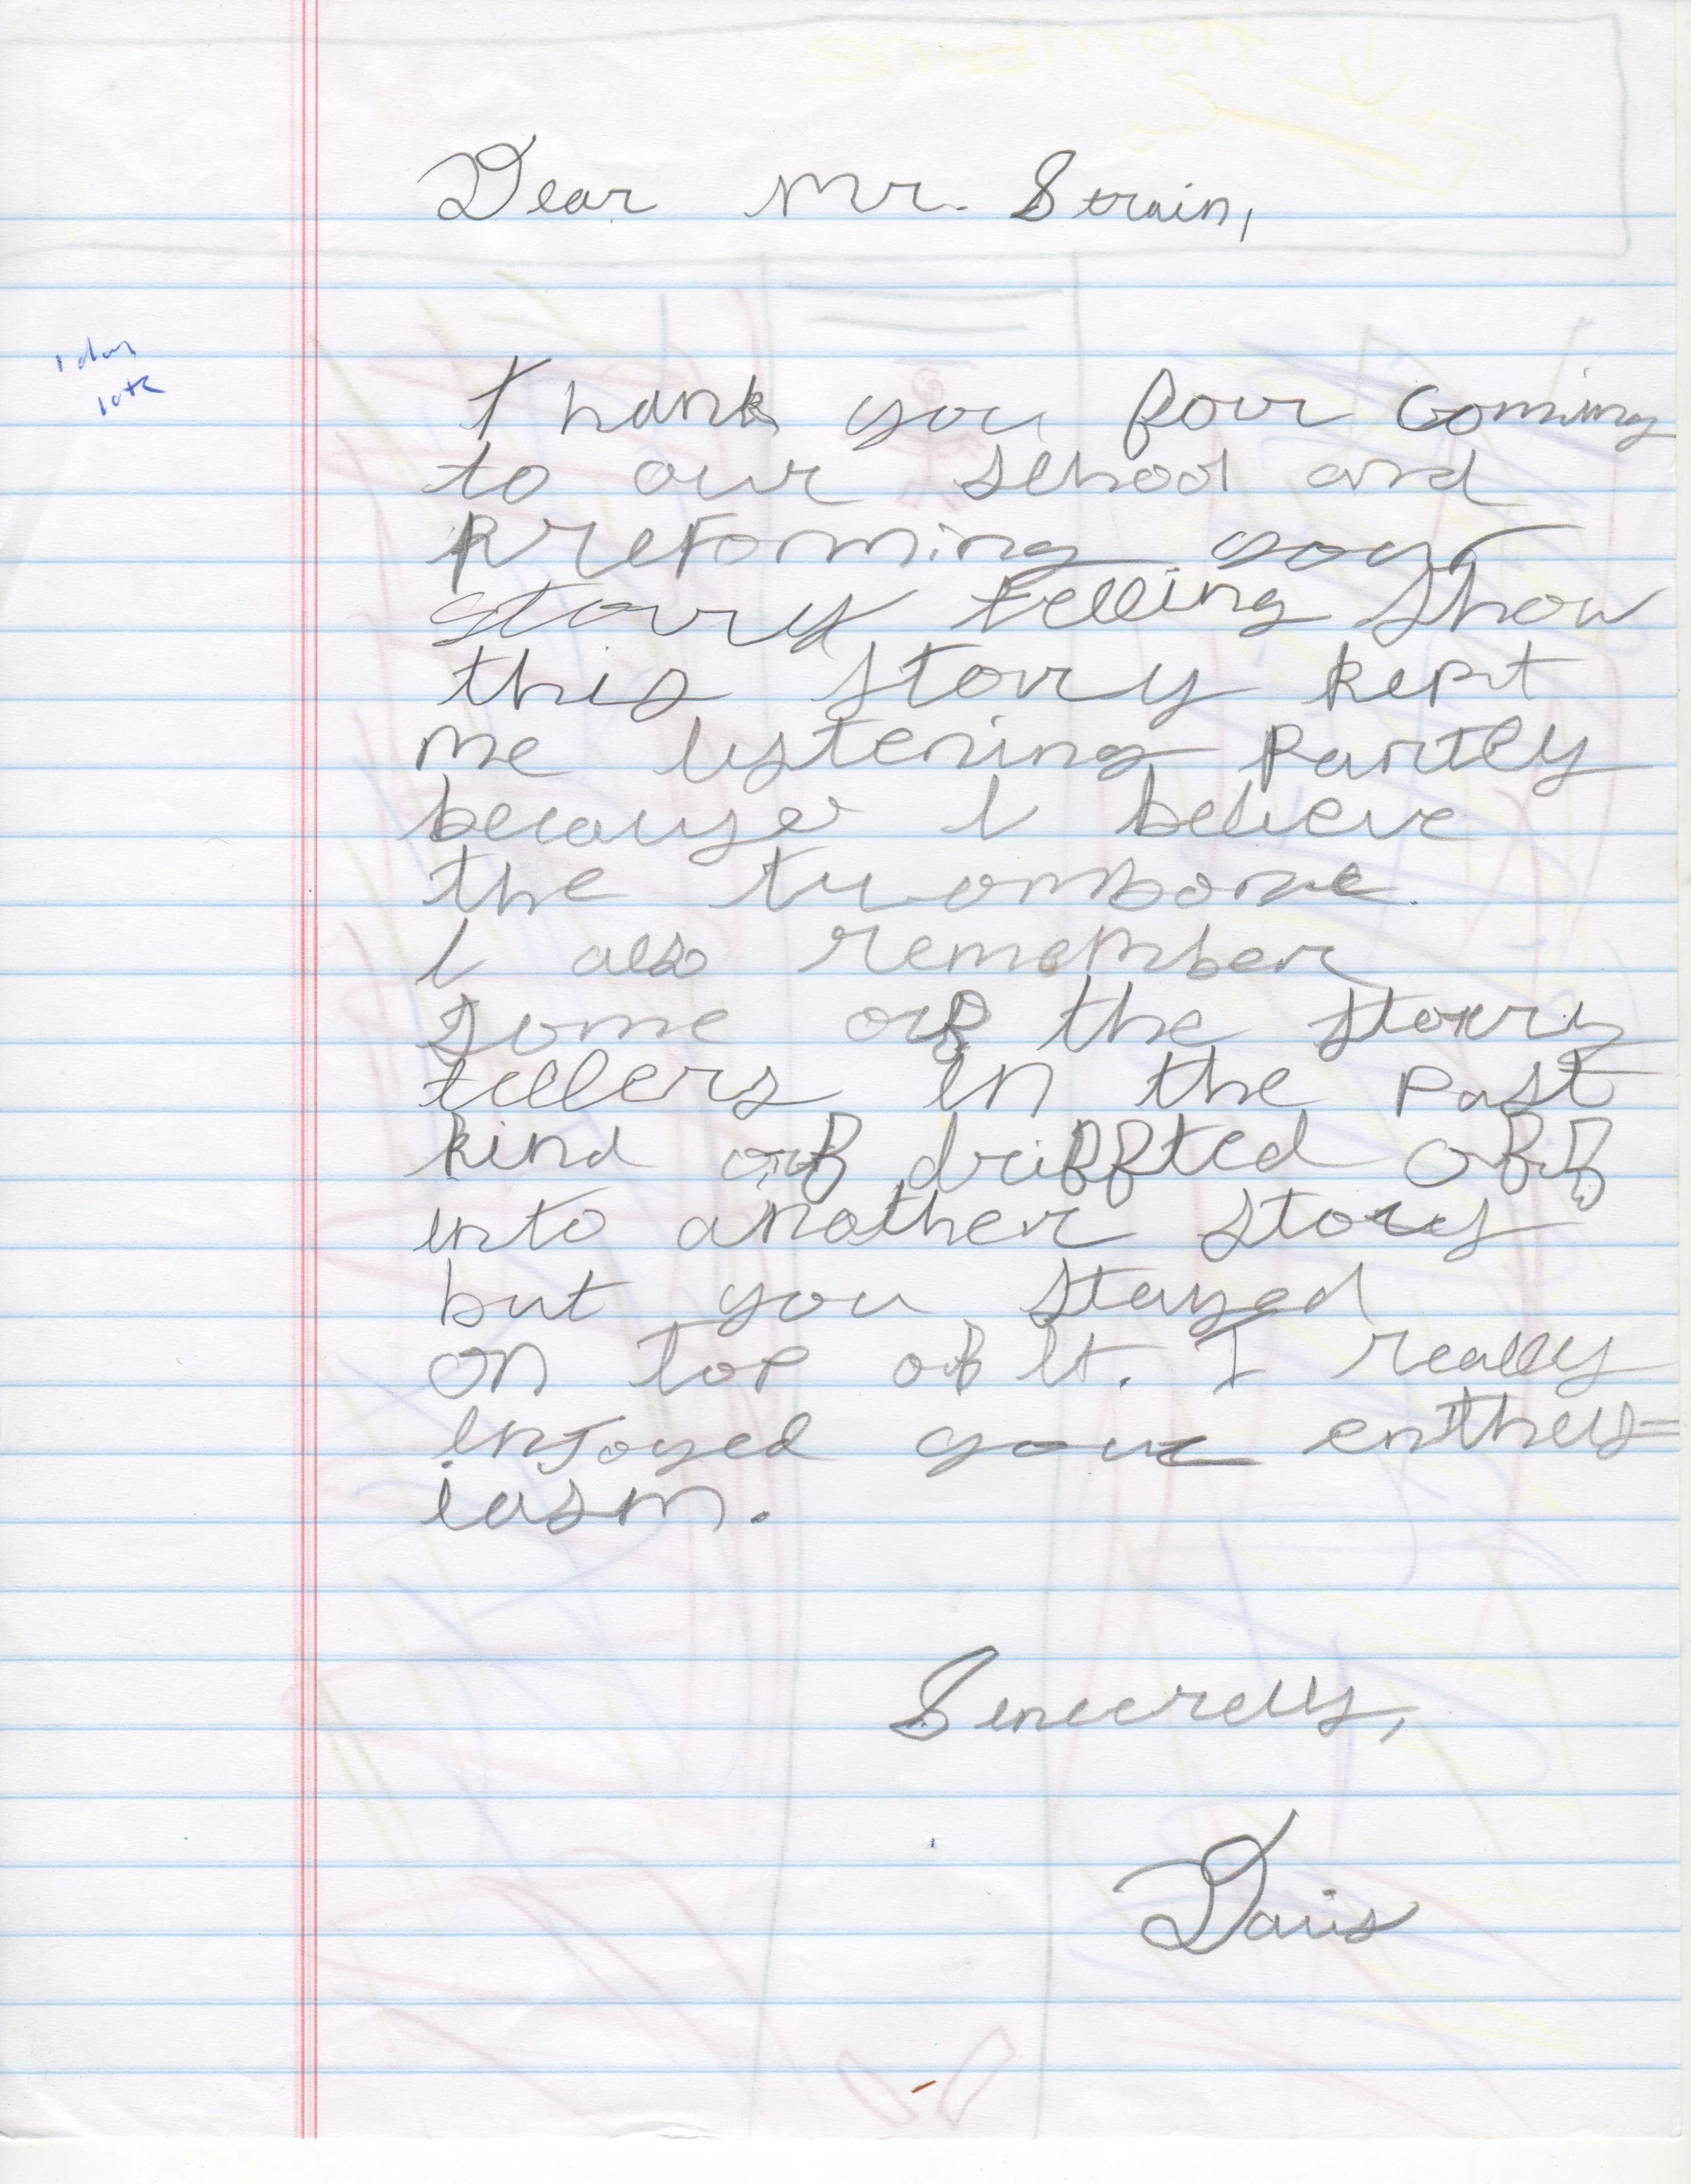 Dear Mr. Strain,
1 day
late
Thank you four Coming
to our school and
Preforming your
storry telling show
this storry kept
me listening Partly
because I believe
the trombone.
I also remember
some of the storry
tellers in the past
kind of driffted off
into another story
but you stayed
on top of it. I really
enjoyed your enthus=
iasm.
Sincerelly,
Davis